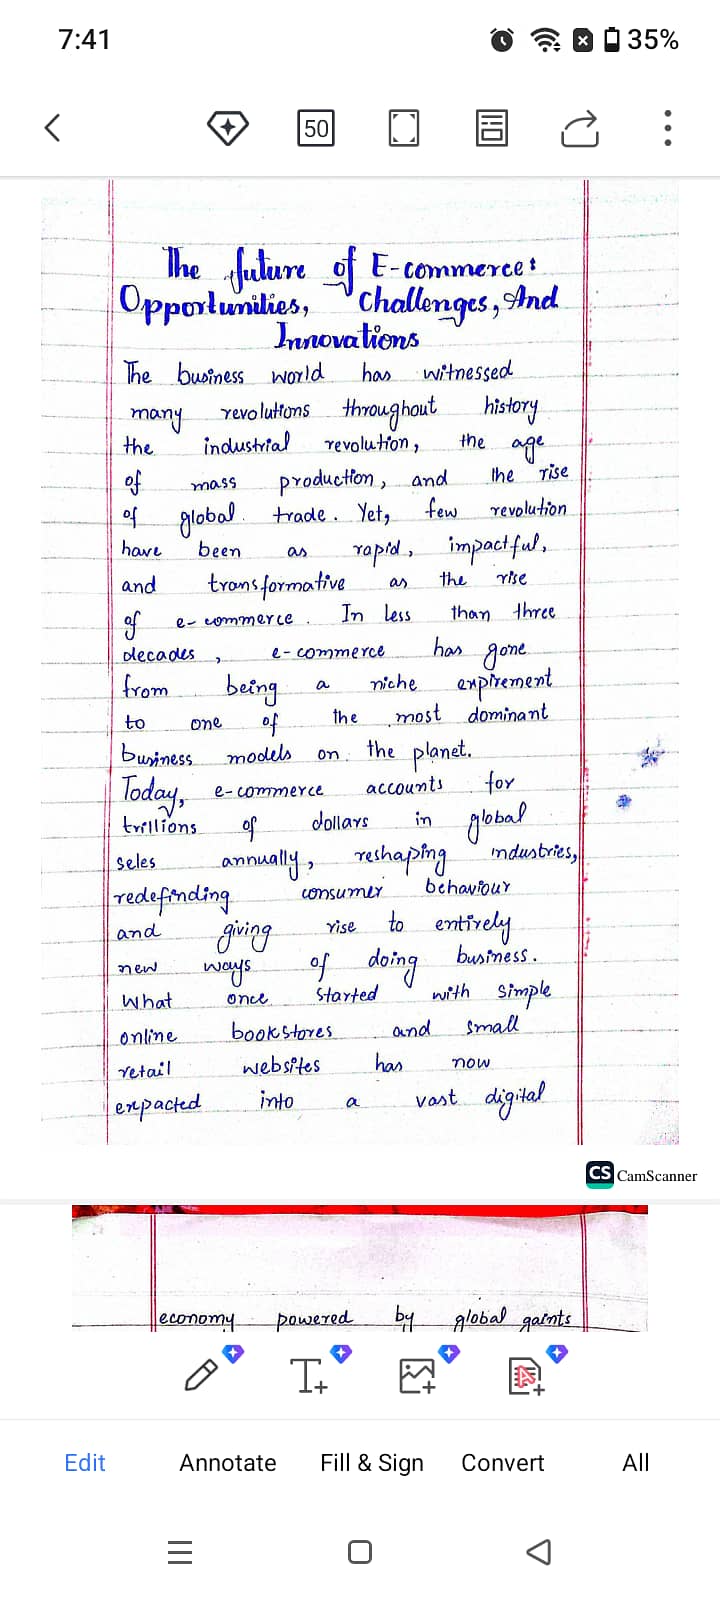 7:41
35%
50
The future of E-commerce:
Opportunities, Challenges, And
Innovations
The business world has witnessed
many revolutions throughout history
the industrial revolution, the age
of mass production, and the rise
of global trade. Yet, few revolution
have been as rapid, impactful,
and transformative as the rise
of e-commerce. In less than three
decades, e-commerce has gone
from being a niche expirement
to one of the most dominant
business models on the planet.
Today, e-commerce accounts for
trillions of dollars in global
seles annually, reshaping industries,
redefinding consumer behaviour
and giving rise to entirely
new ways of doing business.
What once started with simple
online bookstores and small
retail websites has now
expacted into a vast digital
CS CamScanner
economy powered by global gaints
Edit Annotate Fill & Sign Convert All